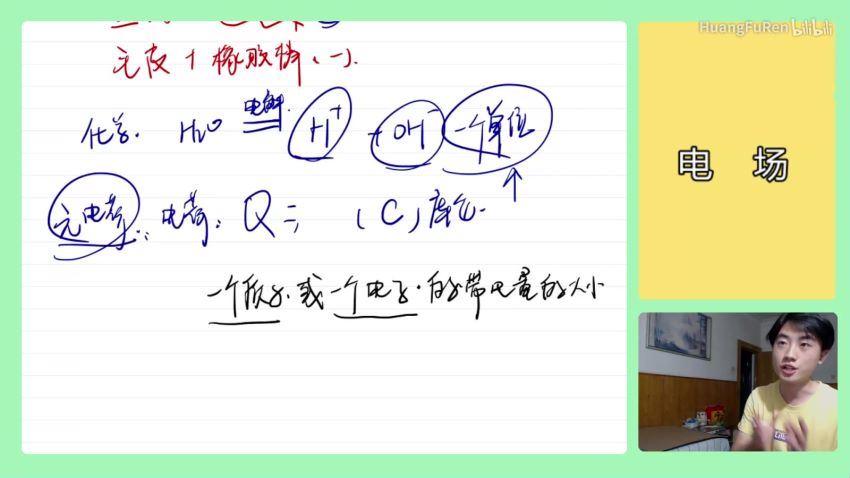 HuangFuRen bilibili
毛皮 + 橡胶棒 (-).
化学. H₂O 电解 H⁺ + OH⁻ 一个单位
元电荷: 电荷: Q = (C) 库仑.
一个质子.或一个电子.的带电量的大小
电 场